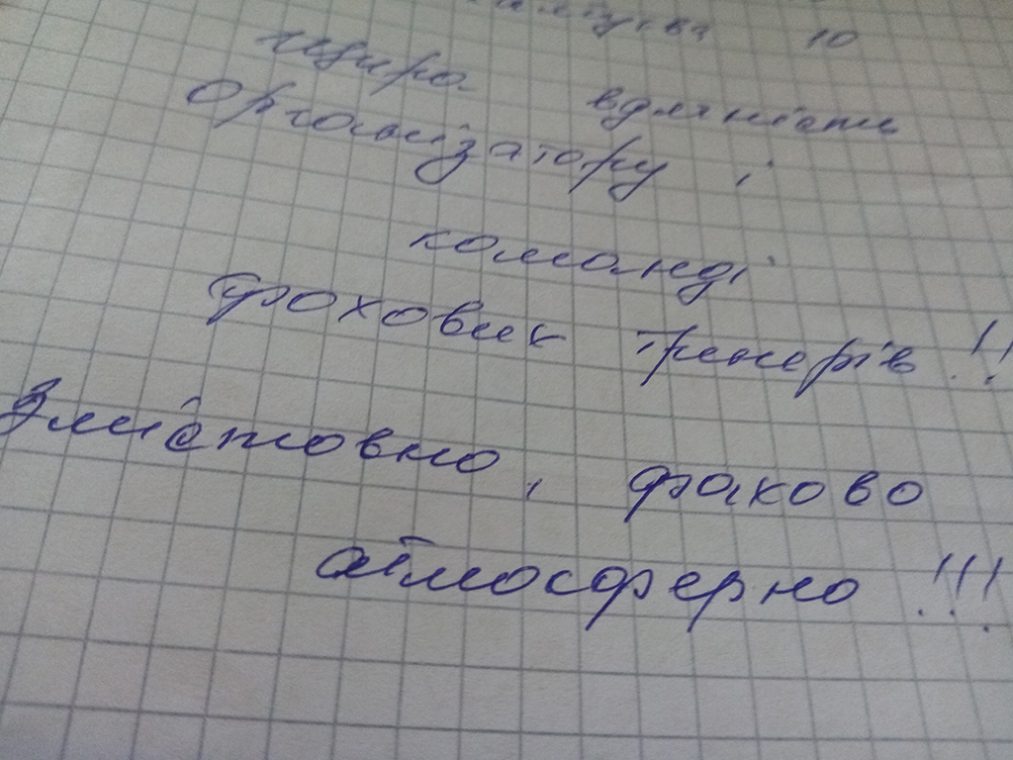 10
щира вдячність
Організатору і
команді
фахових тренерів !!
Змістовно, фахово
атмосферно !!!